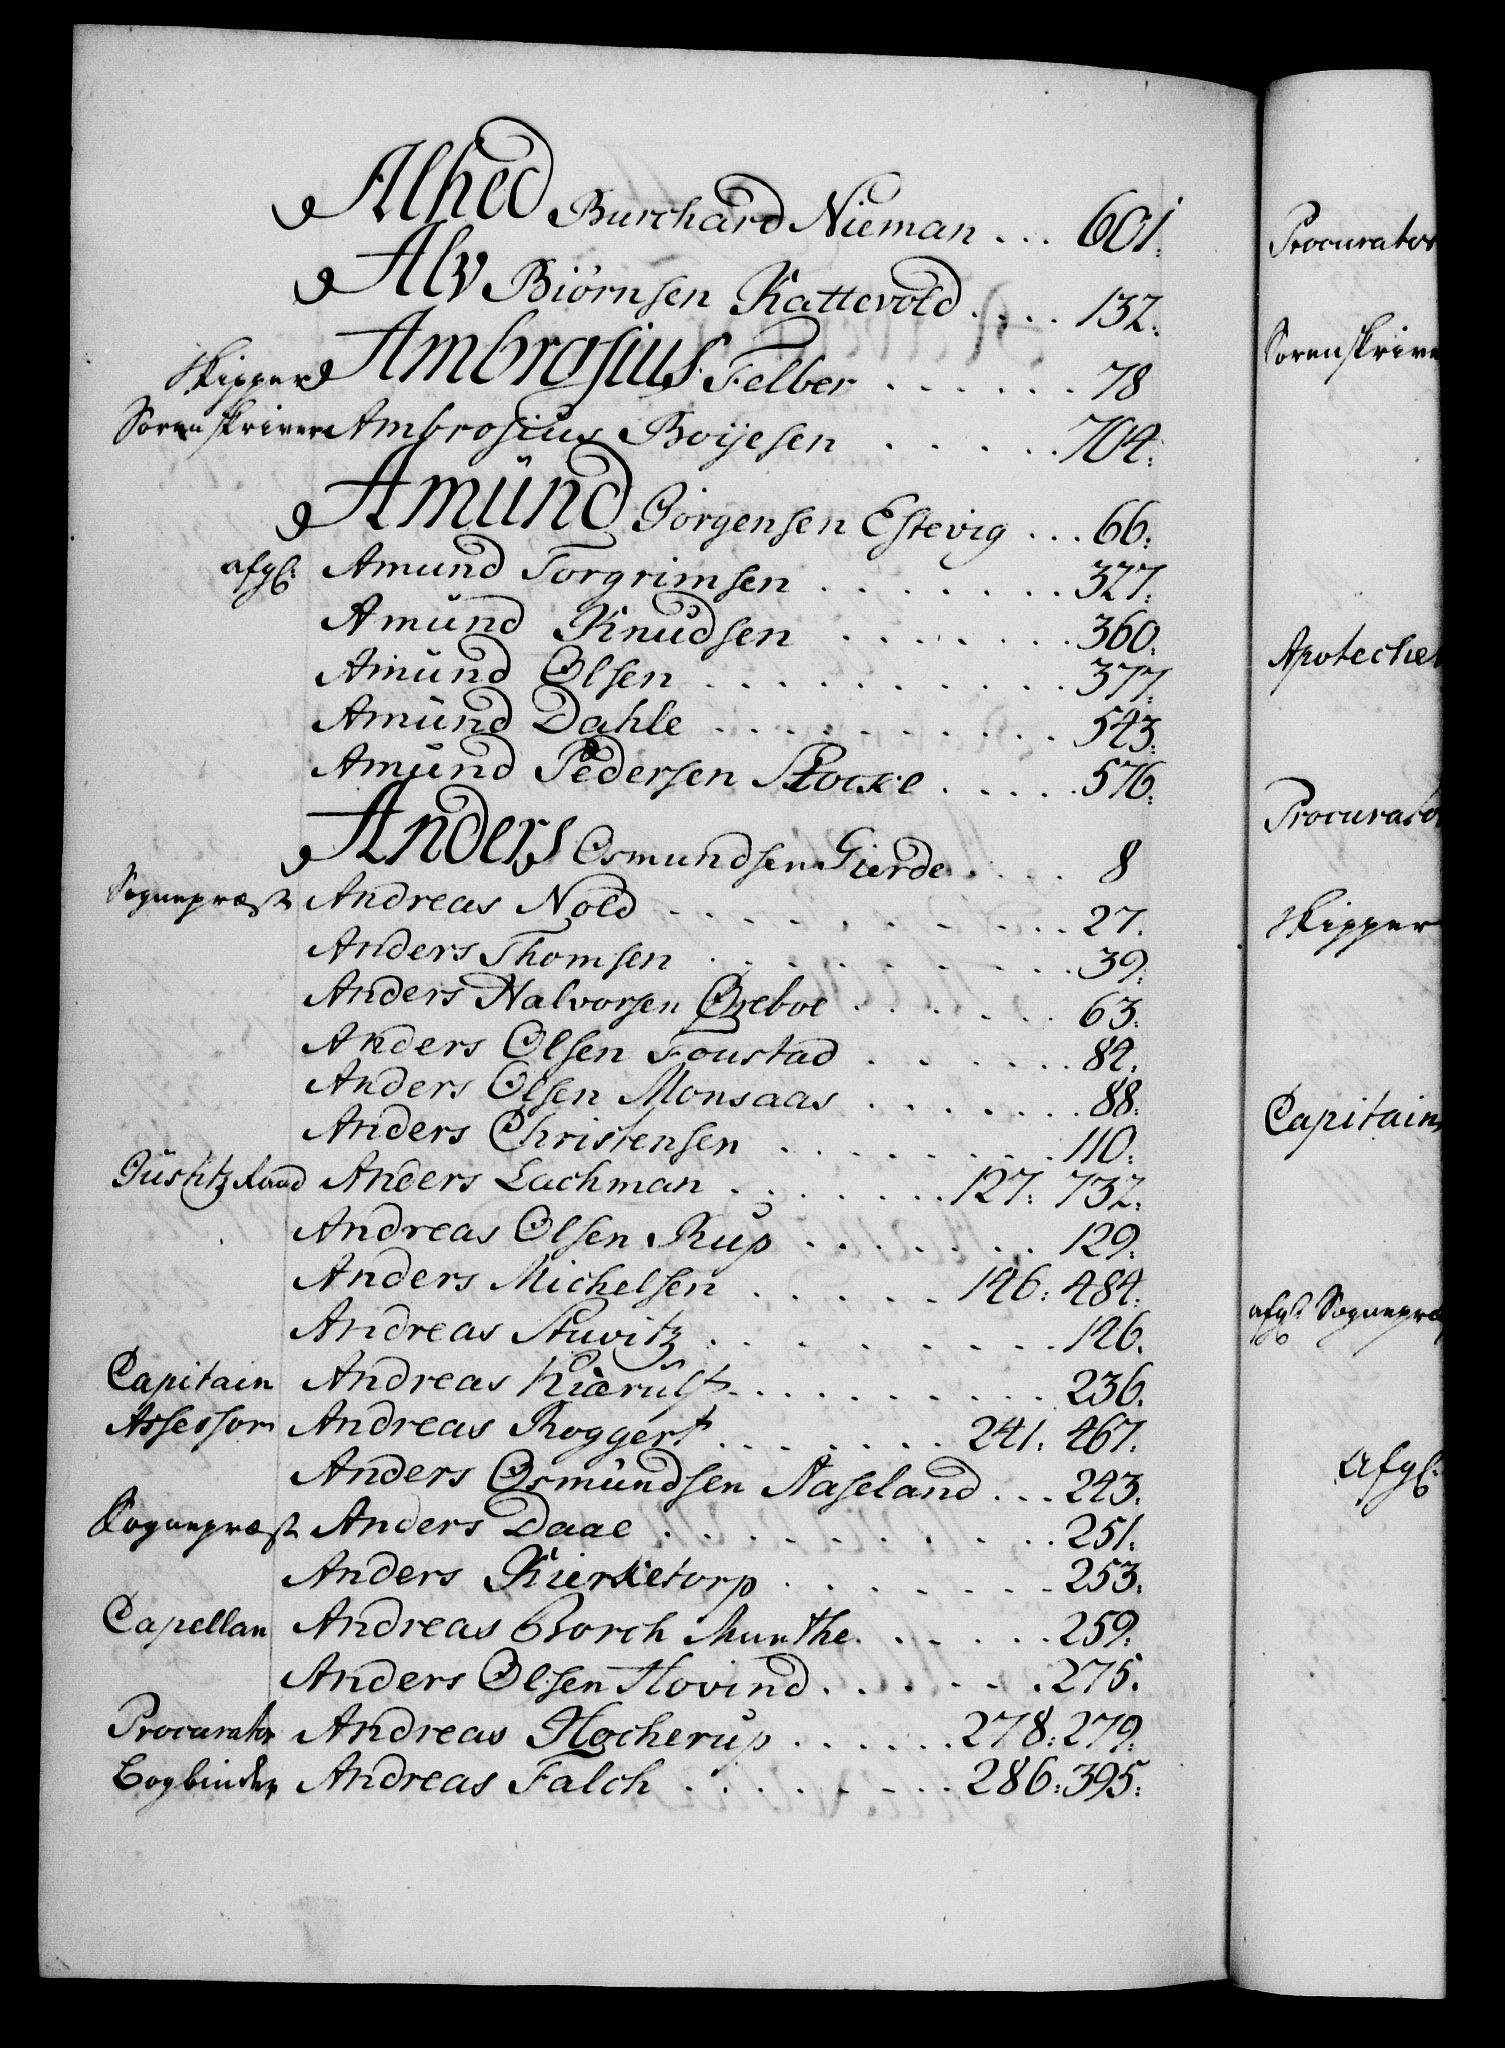 Alhed Burchard Nieman . . . 601.
Alv Biørnsen Kattevold . . . . 132.
Skipper Ambrosius Felber . . . . . . 78
Sorenskriver Ambrosius Boijesen . . . . . 704.
Amünd Jørgensen Estevig . . . 66.
afgl: Amund Torgrimsen . . . . . . . 327.
Amünd Knudsen . . . . . . . 360.
Amünd Olsen . . . . . . . . . . 377.
Amünd Dahle . . . . . . . . . . 543.
Amünd Pedersen Stocke . . . . . 576.
Anders Osmundsen Gierde . . . . 8
Sognepræst Andreas Nold . . . . . . . . . . 27.
Anders Thomsen . . . . . . . . . . 39.
Anders Halvorsen Øreboe . . . . . . 63.
Anders Olsen Foustad . . . . . . . 84.
Anders Olsen Monsaas . . . . . . . 88.
Anders Christensen . . . . . . . . 110.
Jüstitz Raad Anders Lachman . . . . . . . 127: 732.
Andreas Olsen Rup . . . . . . . 129.
Anders Michelsen . . . . . 146: 484.
Andreas Stuvitz . . . . . . . . . 146.
Capitain Andreas Kiærülf . . . . . . . . . 236.
Assessor Andreas Roggert . . . . . . . 241: 467.
Anders Osmündsen Aaseland . . . 243.
Sognepræst Anders Daae . . . . . . . . . . 251.
Anders Kierketorp . . . . . . . . 253.
Capellan Andreas Borch Munthe . . . . . . 259.
Anders Olsen Hovind . . . . . . 275.
Procurator Andreas Høcherup . . . . . . 278: 279.
Bogbinder Andreas Falch . . . . . . . . 286: 395.
Procurator
Sorenskrive
Apoteche
Procurato
Skipper
Capitain
afgl: Sognepræ
Afgl: